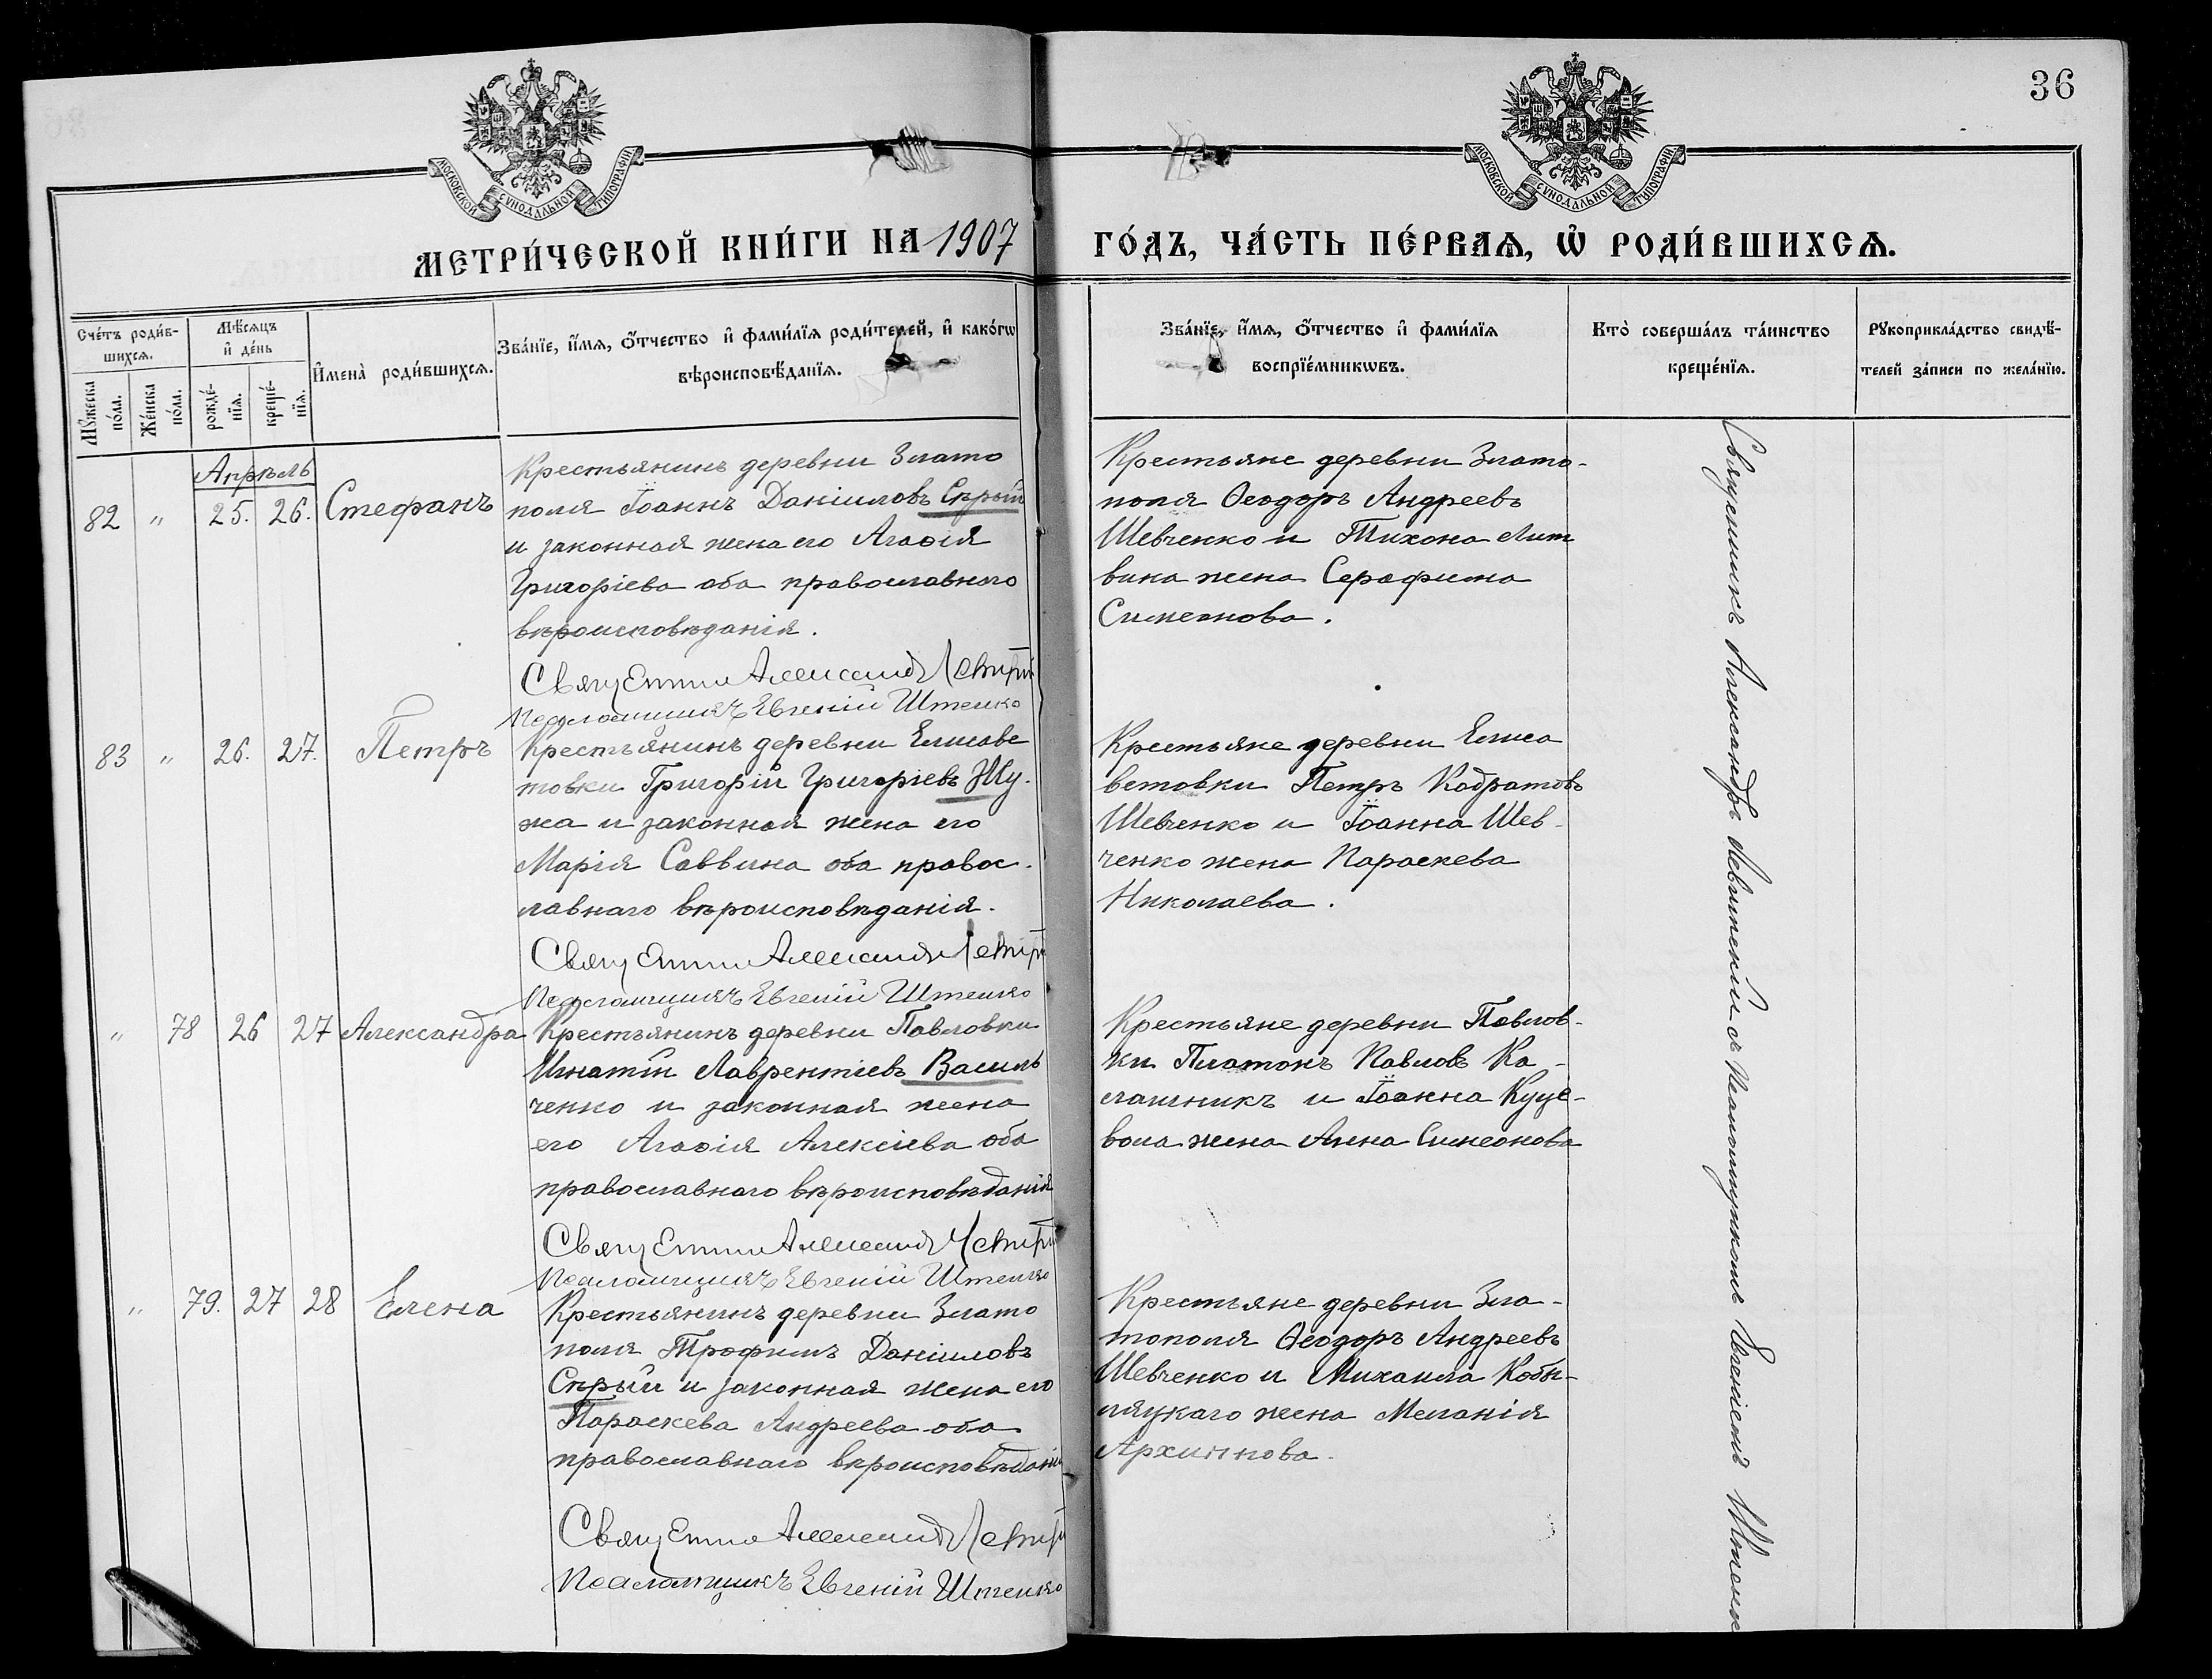 36
МОСКОВСКОЙ СѴНОДАЛЬНОЙ ТИПОГРАФІИ
МОСКОВСКОЙ СѴНОДАЛЬНОЙ ТИПОГРАФІИ
МЕТРИ́ЧЕСКОЙ КНИ́ГИ НА 1907 ГО́ДЪ, ЧА́СТЬ ПЕ́РВАѦ, Ѡ҆ РОДИ́ВШИХСѦ.
Сче́тъ роди́в-
шихсѧ.
Мꙋжеска
по́ла.
Же́нска
по́ла.
Мѣ́сѧцъ
и҆ де́нь
рожде́-
нїѧ.
креще́-
нїѧ.
И҆мена̀ роди́вшихсѧ.
Зва́нїе, и҆́мѧ, ѻ҆́тчество и҆ фами́лїѧ роди́телей, и҆ како́гѡ
вѣроисповѣ́данїѧ.
Зва́нїе, и҆́мѧ, ѻ҆́тчество и҆ фами́лїѧ
воспрїе́мникѡвъ.
Кто̀ соверша́лъ та́инство
креще́нїѧ.
Рꙋкоприкла́дство свидѣ́-
телей за́писи по жела́нїю.
Апрѣль
82 " 25. 26. Стефанъ
Крестьянинъ деревни Злато
поля Іоаннъ Даніиловъ Сѣрый
и законная жена его Агаѳія
Григоріева оба православнаго
вѣроисповѣданія.
Священник Александр
Псаломщикъ Евгеній Штепко
Крестьяне деревни Злато-
поля Ѳеодоръ Андреевъ
Шевченко и Тихона Лит
вина жена Серафима
Симеонова.
83 " 26. 27. Петръ
Крестьянинъ деревни Елисаве
товки Григорій Григоріевъ Жу-
жа и законная жена его
Марія Саввина оба правос-
лавнаго вѣроисповѣданія.
Священник Александр
Псаломщикъ Евгеній Штепко
Крестьяне деревни Елиса
ветовки Петръ Кодратовъ
Шевченко и Іоанна Шев-
ченко жена Параскева
Николаева.
" 78 26 27 Александра
Крестьянинъ деревни Павловки
Игнатій Лаврентіевъ Василь
ченко и законная жена
его Агаѳія Алексіева оба
православнаго вѣроисповѣданія
Священник Александр
Псаломщикъ Евгеній Штепко
Крестьяне деревни Павлов-
ки Платонъ Павловъ Ка-
лашникъ и Іоанна Куце-
вола жена Анна Симеонова
" 79. 27 28 Елена
Крестьянинъ деревни Злато
поля Трофимъ Даніиловъ
Сѣрый и законная жена его
Параскева Андреева оба
православнаго вѣроисповѣданія
Священник Александр
Псаломщикъ Евгеній Штепко
Крестьяне деревни Зла-
тополя Ѳеодоръ Андреевъ
Шевченко и Михаила Кобы-
ляцкаго жена Меланія
Архипова.
Священникъ Александръ съ псаломщикомъ Евгеніемъ